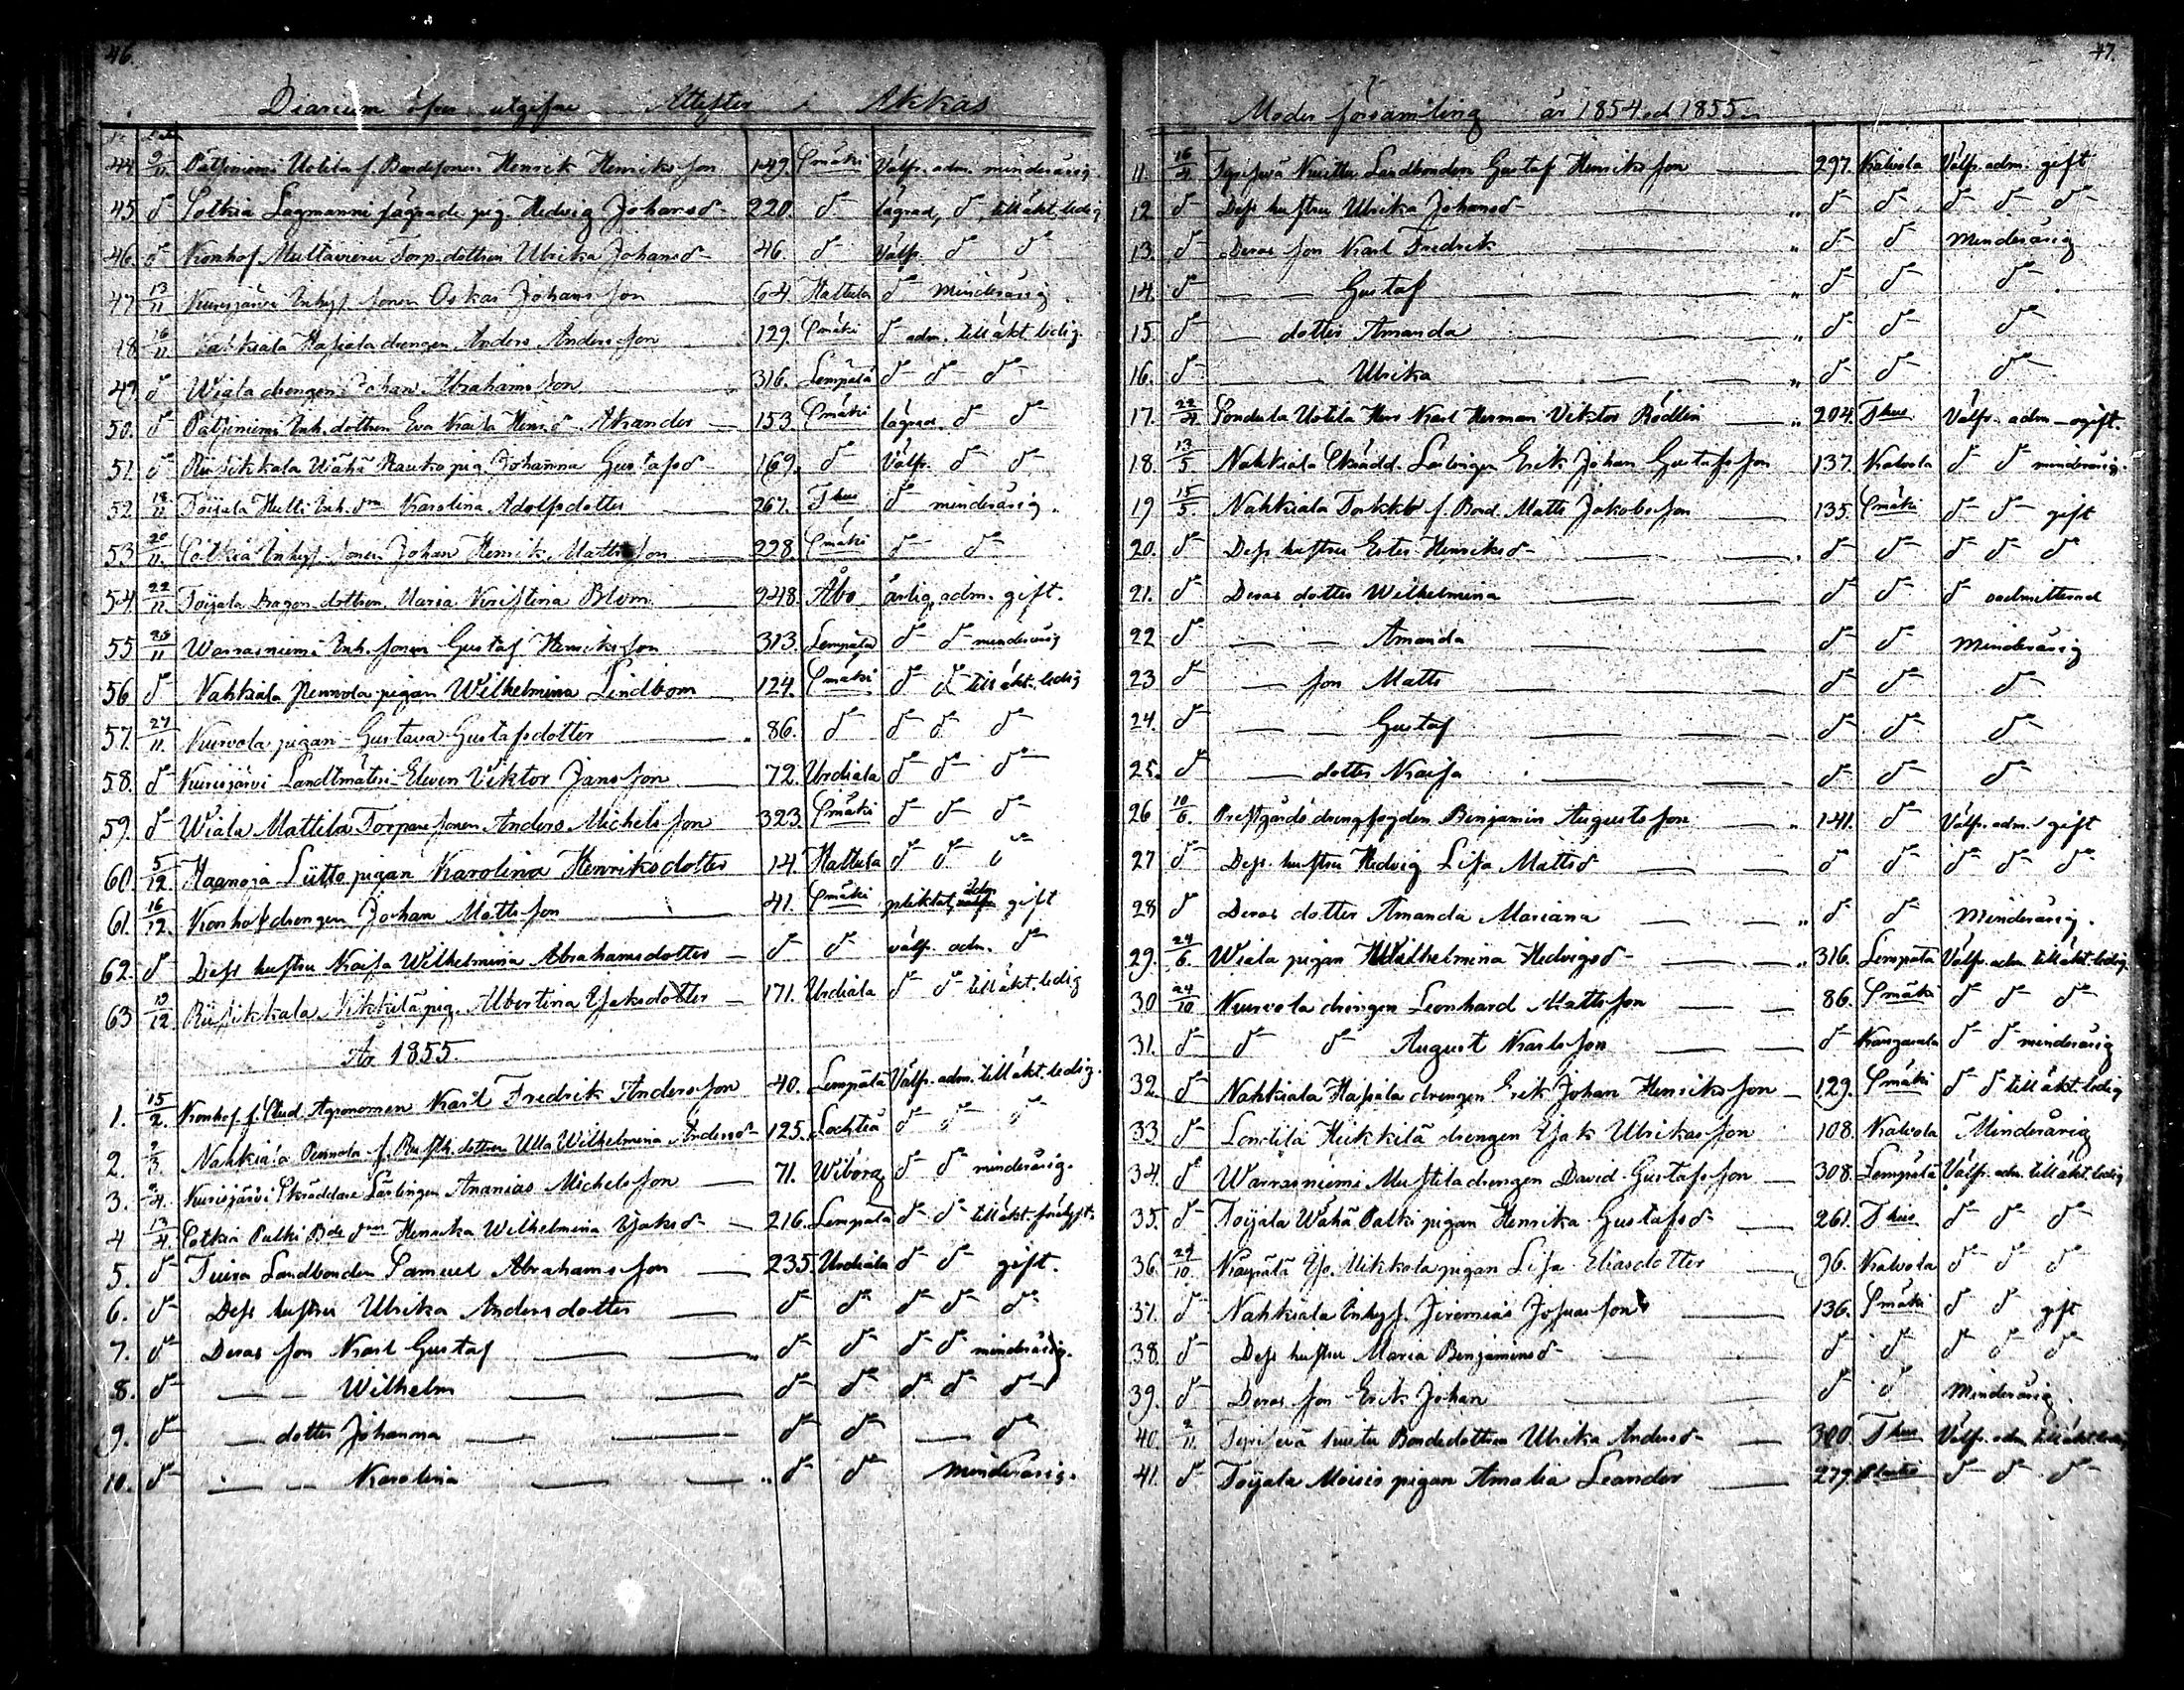 46.
Diarium öfver utgifne Attester i Akkas
44 9/11 Pätsiniemi Uotila f. Bondesonen Henrik Henriksson 149. Smäki Välfr. adm. minderårig
45 d:o Sotkia Lagmanni lägrade pig. Hedvig Johansd:r 220. d:o lägrad, d:o, till äkt. ledig
46. d:o Konhof Multavieru Torp. dottren Ulrika Johansd:r 46. d:o Välfr. d:o d:o
47 13/11 Kurisjärvi Inhys. sonen Oskar Johansson 64 Hattula d:o Minderårig
48 16/11 Nahkiala Hasiala drengen Anders Andersson 129. Smäki d:o adm. till äkt. ledig.
49. d:o Wiala drengen Johan Abrahamsson 316. Lempälä d:o d:o d:o
50. d:o Pätsiniemi Inh. dottren Eva Kaisa Henr.d:r Akander 153 Smäki lägrad. d:o d:o
51. d:o Riisikkala Wähä Rauko pig. Johanna Gustafsd:r 169. d:o Välfr. d:o d:o
52. 18/11 Toijala Hulli Inh. d:ren Karolina Adolfsdotter 267. Thus d:o minderårig.
53 20/11. Sotkia Inhys. sonen Johan Henrik Mattsson 228. Smäki d:o d:o
54 22/11 Toijala Dragon dottren Maria Kristina Blom 248. Åbo ärlig, adm. gift.
55 /11 Warrasniemi Inh. sonen Gustaf Henriksson 313. Lempälä d:o d:o minderårig
56 d:o Nahkiala Pennola pigan Wilhelmina Lindbom 124. Smäki d:o d:o till äkt. ledig
57. 27/11. Kurvola pigan Gustava Gustafsdotter 86. d:o d:o d:o d:o
58. d:o Kurisjärvi Landtmäteri Eleven Viktor Jansson 72. Urdiala d:o d:o d:o
59. d:o Wiala Mattila Torparesonen Anders Michelsson 323. Smäki d:o d:o d:o
60. 5/12 Haanoja Liitto pigan Karolina Henriksdotter 14. Hattula d:o d:o d:o
61. 16/12. Konhof drengen Johan Mattsson 41. Smäki pliktat, adm gift
62. d:o Dess hustru Kaisa Wilhelmina Abrahamsdotter d:o d:o välfr. adm. d:o
63 19/12 Riisikkala Nikkilä pig. Albertina Isaksdotter 171. Urdiala d:o d:o till äkt. ledig
År 1855
1. 15/2. Konhof f. Stud. Agronomen Karl Fredrik Andersson 40. Lempälä Välfr. adm. till äkt. ledig.
2. 2/3 Nahkiala Pennola f. Rusth. dottren Ulla Wilhelmina Andersd:r 125. Lochteå d:o d:o d:o
3. /4. Kurisjärvi Skräddare Lärlingen Ananias Michelsson 71. Wiborg d:o d:o minderårig.
4 13/4. Sotkia Pulki Bde d:ren Henrika Wilhelmina Isaksd:r 216. Lempälä d:o d:o till äkt.
5. d:o Tuira Landbonden Samuel Abrahamsson 235. Urdiala d:o d:o gift.
6. d:o Dess hustru Ulrika Andersdotter d:o d:o d:o d:o d:o
7. d:o Deras son Karl Gustaf d:o d:o d:o d:o minderårig.
8. d:o Wilhelm d:o d:o d:o d:o d:o
9. d:o dotter Johanna d:o d:o d:o
10. d:o Karolina d:o d:o Minderårig.
47.
Moder församling år 1854 och 1855.
11. 16/4 Sepisevä Kuittu Landbonden Gustaf Henriksson 297. Kalvola Välfr. adm. gift
12 d:o Dess hustru Ulrika Johansd:r d:o d:o d:o d:o d:o
13. d:o Deras son Karl Fredrik d:o d:o Minderårig
14. d:o Gustaf d:o d:o d:o
15. d:o dotter Amanda d:o d:o d:o
16. d:o Ulrika d:o d:o d:o
17. 22/4 Sondala Uotila Herr Karl Herman Viktor Rödlin 204. Thus Välfr. adm. ogift.
18. 13/5. Nahkiala Skrädd. Lärlingen Erik Johan Gustafsson 137. Kalvola d:o d:o minderårig.
19 15/5. Nahkiala Torkko f. Bond. Matts Jakobsson 135. Smäki d:o d:o gift
20. d:o Dess hustru Ester Henriksd:r d:o d:o d:o d:o d:o
21. d:o Deras dotter Wilhelmina d:o d:o d:o oadmitterad
22 d:o Amanda d:o d:o Minderårig
23 d:o son Matts d:o d:o d:o
24. d:o Gustaf d:o d:o d:o
25. d:o dotter Kaisa d:o d:o d:o
26 10/6. Prestgårds drengfogden Benjamin Augustsson 141. d:o Välfr. adm. gift
27 d:o Dess hustru Hedvig Lisa Mattsd:r d:o d:o d:o d:o d:o
28 d:o Deras dotter Amanda Mariana d:o d:o Minderårig.
29. 24/6. Wiala pigan Wilhelmina Hedvigsd:r 316. Lempälä Välfr. adm. till äkt. ledig.
30 24/10 Kurvola drengen Leonhard Mattsson 86. Smäki d:o d:o d:o
31. d:o d:o d:o August Karlsson d:o Kangasala d:o d:o minderårig
32. d:o Nahkiala Hasiala drengen Erik Johan Henriksson 129. Smäki d:o d:o till äkt. ledig
33 d:o Lontila Heikkilä drengen Isak Ulrikasson 108. Kalvola Minderårig
34. d:o Warrasniemi Mustila drengen David Gustafsson 308. Lempälä Välfr. adm. till äkt. ledig
35. d:o Toijala Wähä Palki pigan Henrika Gustafsd:r 261. Thus d:o d:o d:o
36. 29/10. Mikkola pigan Lisa Eliasdotter 96. Kalvola d:o d:o d:o
37. d:o Nahkiala Inhys. Jeremias Josuasson 136. Smäki d:o d:o gift
38. d:o Dess hustru Maria Benjaminsd:r d:o d:o d:o d:o d:o
39. d:o Deras son Erik Johan d:o d:o Minderårig.
40. 2/11. Sepisevä Kuitu Bondedottren Ulrika Andersd:r 300. Thus Välfr. adm. till äkt. ledig
41. d:o Toijala Moisio pigan Amalia Leander 279. d:o d:o d:o